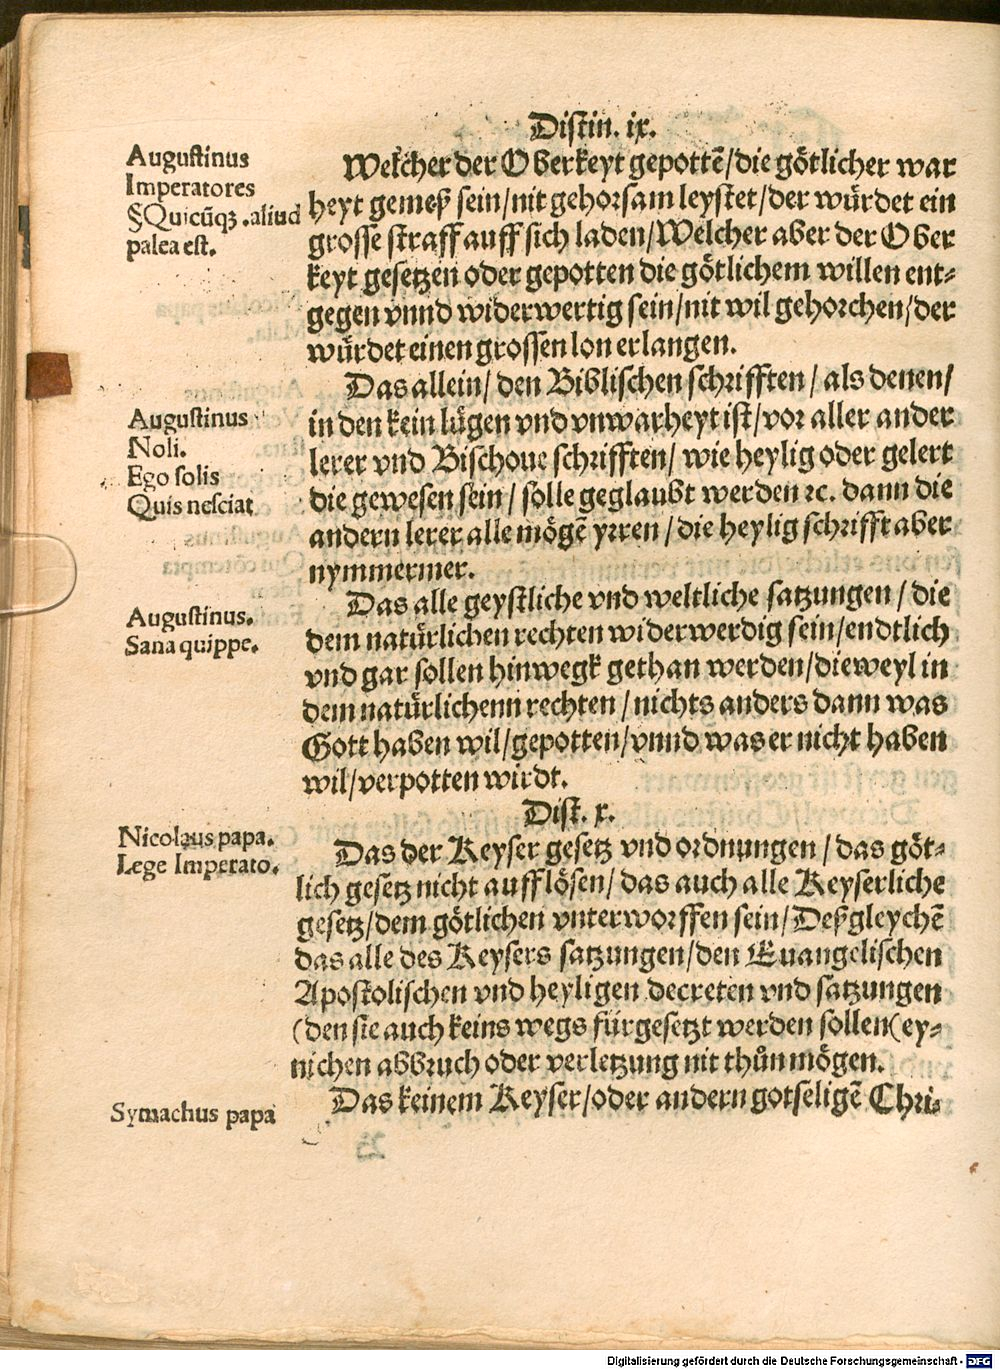 Distin. ix.
Augustinus
Imperatores
§Quicūqꝫ .aliud
palea est.
Welcher der Oberkeyt gepottē/die götlicher war
heyt gemeß sein/nit gehorsam leystet/der würdet ein
grosse straff auff sich laden/Welcher aber der Ober
keyt gesetzen oder gepotten die götlichem willen ent⸗
gegen vnnd widerwertig sein/nit wil gehorchen/der
würdet einen grossen lon erlangen.
Augustinus
Noli.
Ego solis
Quis nesciat
Das allein/ den Biblischen schrifften/ als denen/
in den kein lügen vnd vnwarheyt ist/vor aller ander
lerer vnd Bischoue schrifften/ wie heylig oder gelert
die gewesen sein/ solle geglaubt werden ꝛc. dann die
andern lerer alle mögē yrren/die heylig schrifft aber
nymmermer.
Augustinus.
Sana quippe.
Das alle geystliche vnd weltliche satzungen/ die
dem natürlichen rechten widerwerdig sein/endtlich
vnd gar sollen hinwegk gethan werden/dieweyl in
dem natürlichenn rechten/nichts anders dann was
Gott haben wil/gepotten/vnnd was er nicht haben
wil/verpotten wirdt.
Dist. x.
Nicolaus papa.
Lege Imperato.
Das der Keyser gesetz vnd ordnungen/das göt⸗
lich gesetz nicht aufflösen/das auch alle Keyserliche
gesetz/dem götlichen vnterworffen sein/Deßgleychē
das alle des Keysers satzungen/den Euangelischen
Apostolischen vnd heyligen decreten vnd satzungen
(den sie auch keins wegs fürgesetzt werden sollen(ey⸗
nichen abbruch oder verletzung nit thůn mögen.
Symachus papa
Das keinem Keyser/oder andern gotseligē Chri⸗
Digitalisierung gefördert durch die Deutsche Forschungsgemeinschaft - DFG